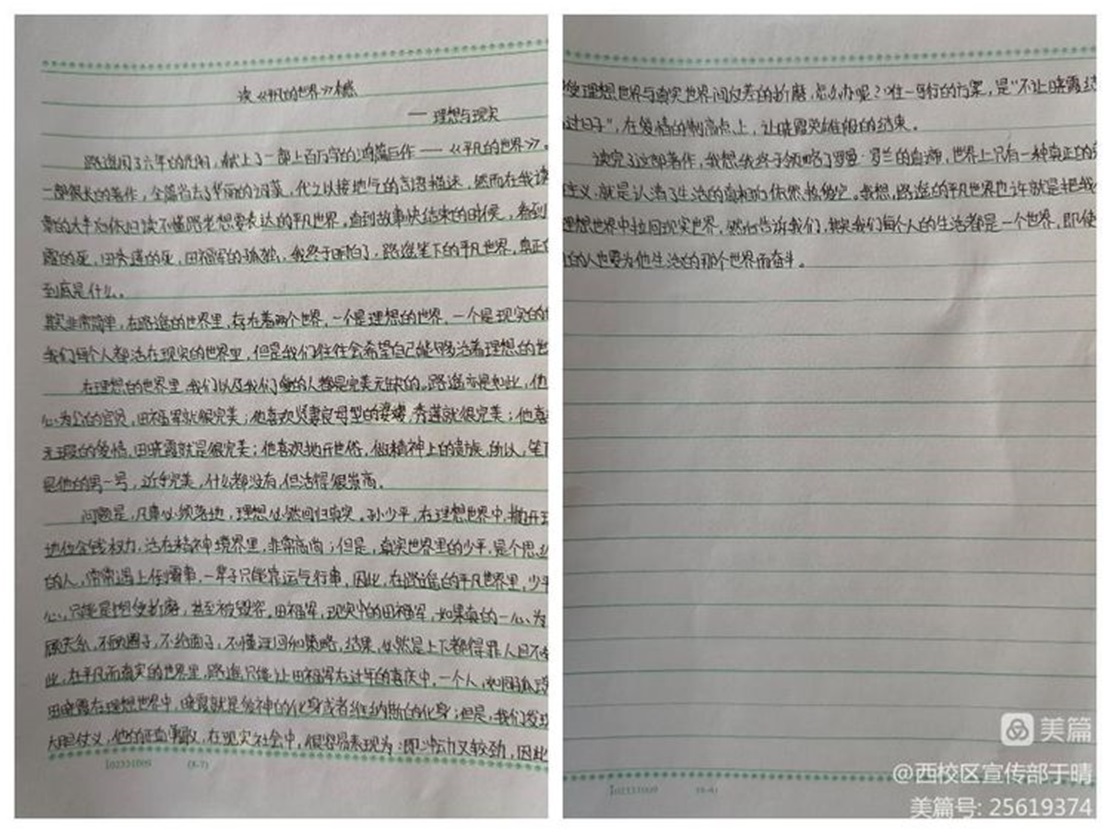 读《平凡的世界》有感
——理想与现实
路遥用了六年的光阴,献上了一部上百万字的鸿篇巨作——《平凡的世界》。
一部很长的著作,全篇省去了华丽的词藻,代之以接地气的言语描述,然而在我读
的大半后依旧读不懂路老想要表达的平凡世界。直到故事快结束的时候,看到
霞的死,田秀莲的死,田福军的孤独,我终于明白了,路遥笔下的平凡世界,真正
到底是什么。
其实非常简单,在路遥的世界里,存在着两个世界,一个是理想的世界,一个是现实的
我们每个人都活在现实的世界里,但是我们往往会希望自己能够活着理想的世
在理想的世界里,我们以及我们爱的人都是完美无缺的。路遥亦是如此,他
心为公的官员,田福军就很完美;他喜欢贤妻良母型的婆姨,秀莲就很完美;他喜
无瑕的爱情,田晓霞就是很完美;他喜欢抛开世俗,做精神上的贵族,所以,笔下
是他的男一号,近乎完美,什么都没有,但活得很崇高。
问题是,凡事必须落地,理想必然回归真实。孙少平,在理想世界中,抛开
地位金钱权力,活在精神境界里,非常高尚;但是,真实世界里的少平,是个思
的人,常常遇上倒霉事,一辈子只能靠运气行事,因此,在路遥的平凡世界里,少平
心,只能是把使折磨,甚至被毁容。田福军,现实中的田福军,如果真的一心为
顾关系,不画圈子,不给面子,不懂迂回和策略,结果,必然是上下都得罪人且不
此,在平凡而真实的世界里,路遥只能让田福军在过年的喜庆中,一个人,如同孤
田晓霞在理想世界中,晓霞就是爱神的化身或者维纳斯的化身;但是,我们发现
大胆仗义,他的正直勇敢,在现实社会中,很容易表现为:即冲动又较劲,因此
102331009 (8-7)
受理想世界与真实世界间反差的折磨,怎么办呢?唯一可行的方案,是“不让晓霞
过日子”,在爱情的制高点上,让晓霞英雄般的结束。
读完了这部著作,我想我终于领略了罗曼·罗兰的血神,世界上只有一种真正的
主义,就是认清了生活的真相后依然热爱它。我想,路遥的平凡世界也许就是把我
理想世界中拉回现实世界,然后告诉我们,其实我们每个人的生活都是一个世界,即使
的人也要为他生活的那个世界而奋斗。
美篇
@西校区宣传部于晴
美篇号: 25619374